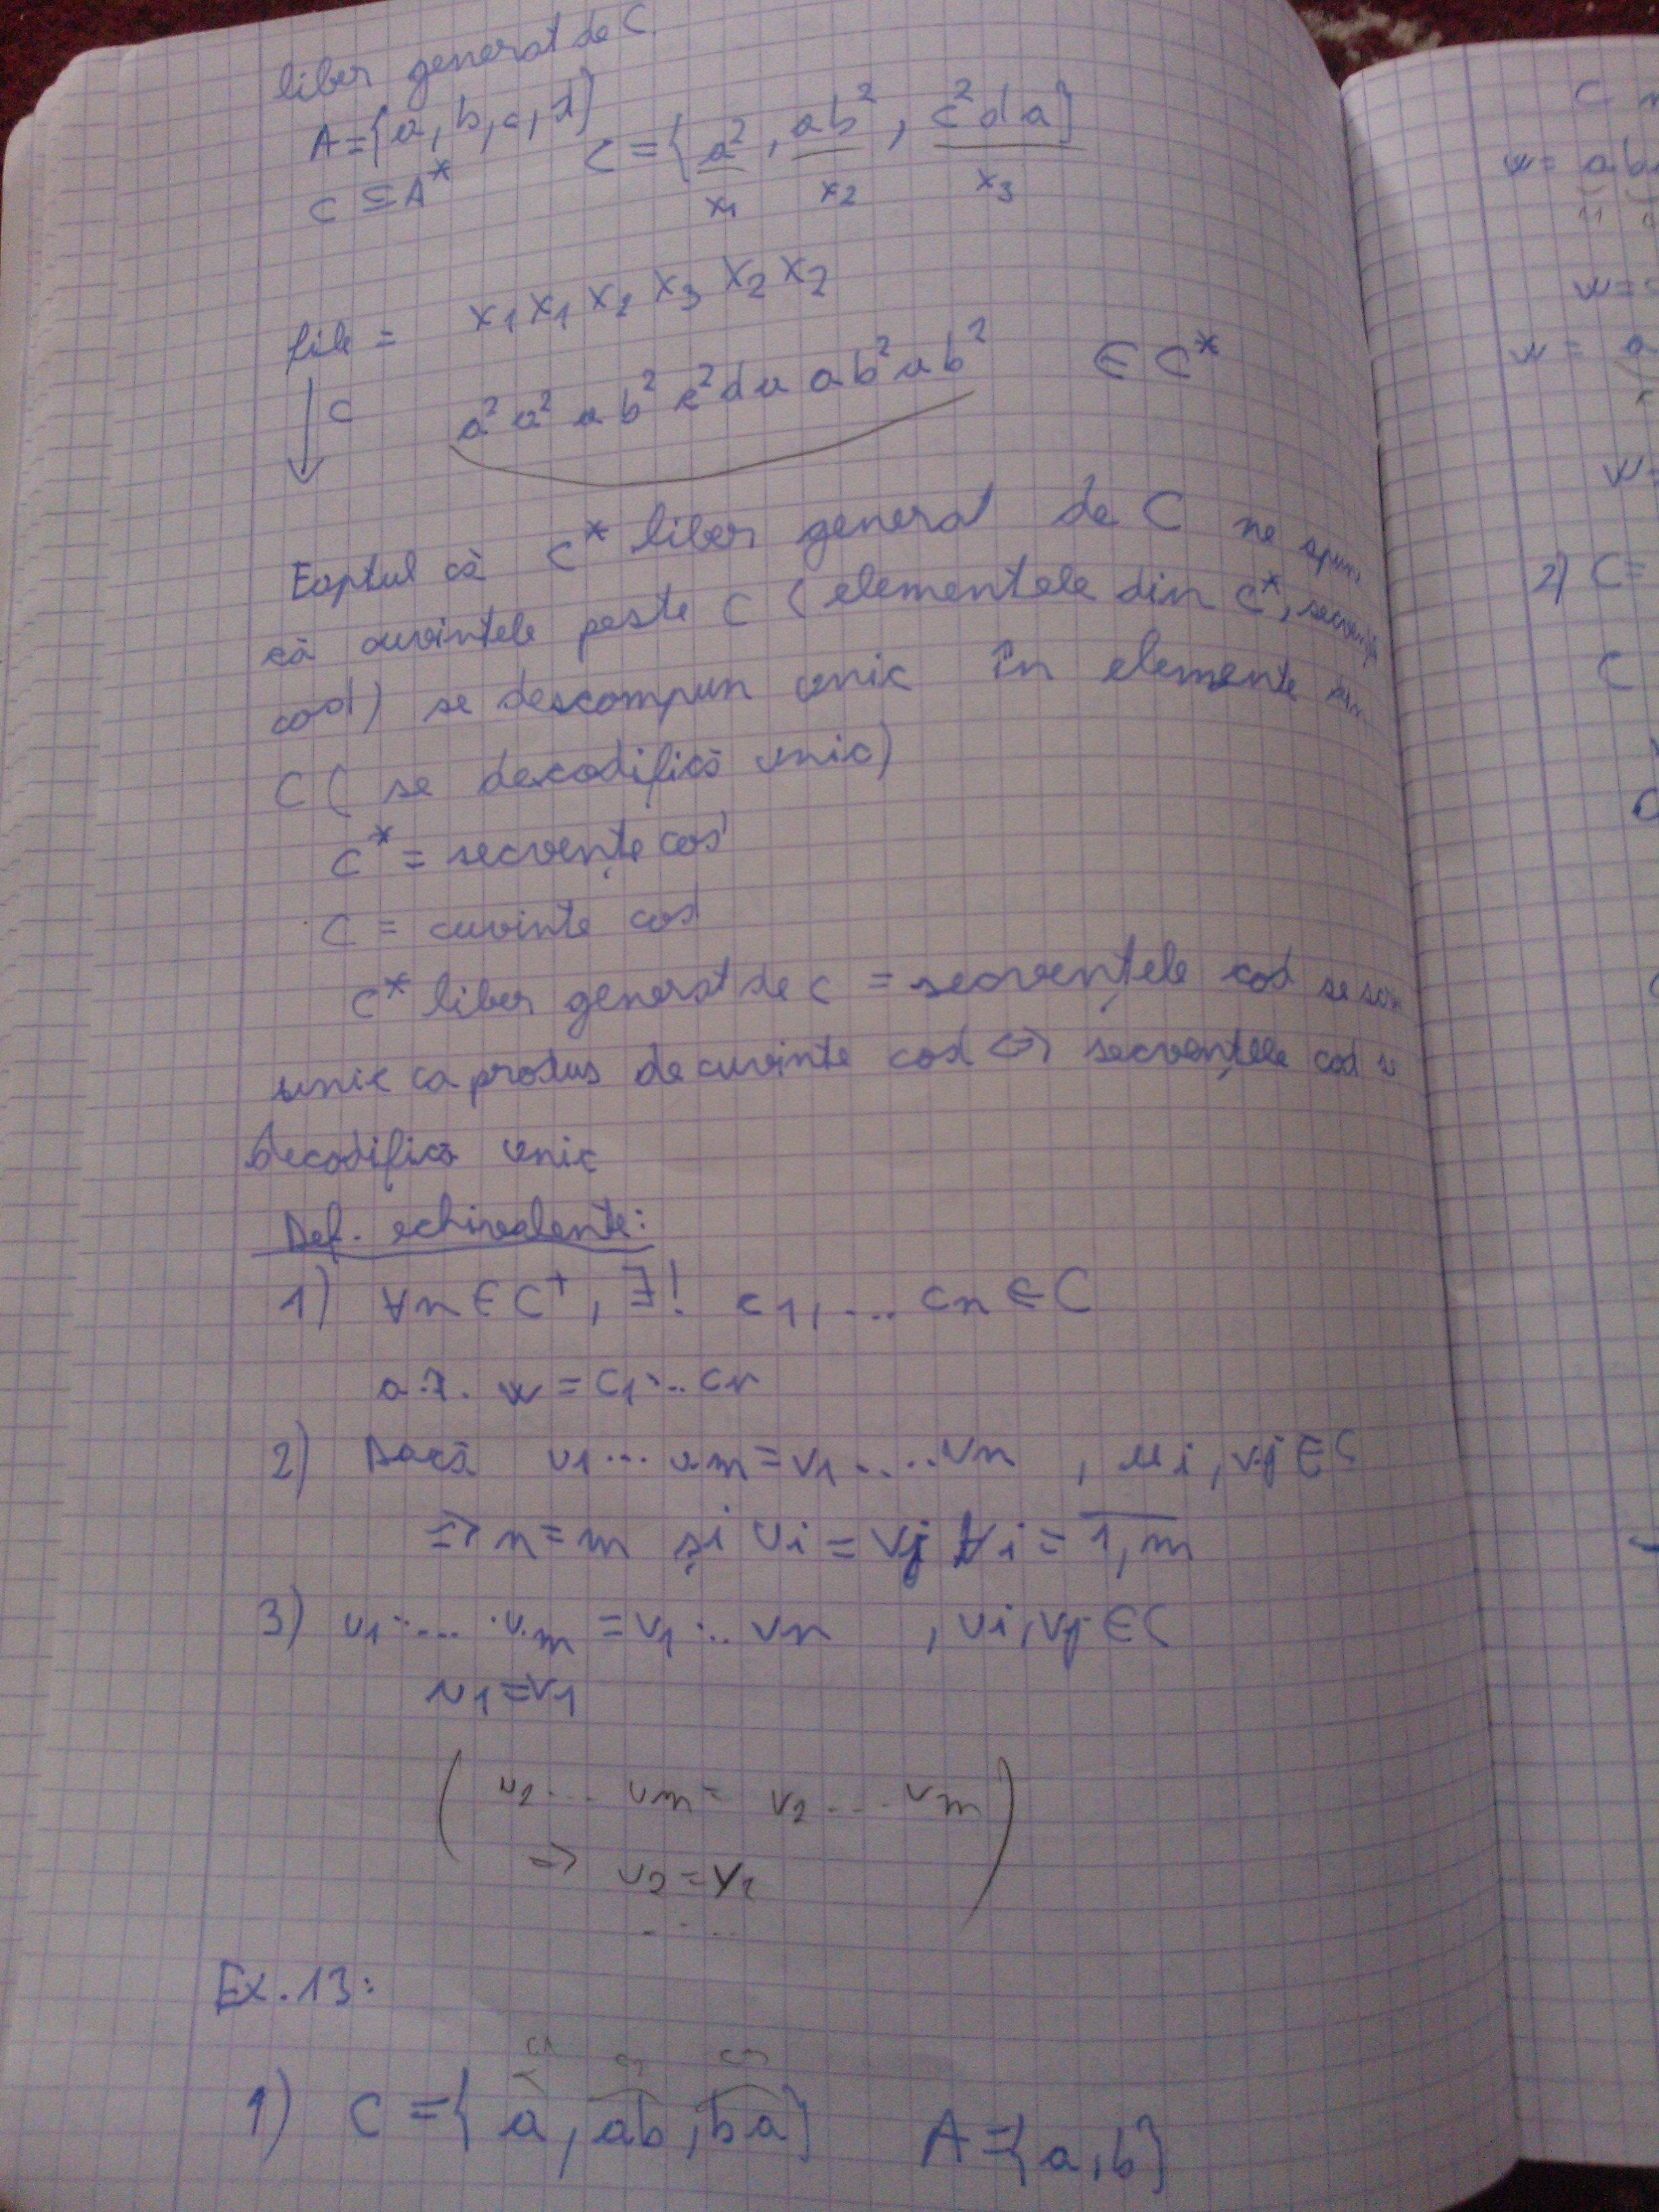 liber generat de C
A={a, b, c, d}
C ⊆ A*
C = {a², ab², c²da}
x1 x2 x3
file = x1 x1 x2 x3 x2 x2
↓ C
a² a² ab² c²da ab² ab² ∈ C*
Faptul că C* liber generat de C ne spune
că cuvintele peste C (elementele din C*, secvențe
cod) se descompun unic în elemente din
C ( se decodifică unic)
C* = secvențe cod
C = cuvinte cod
C* liber generat de C = secvențele cod se scriu
unic ca produs de cuvinte cod ⇔ secvențele cod se
decodifică unic
Def. echivalente:
1) ∀n∈C⁺, ∃! c1, ... cn ∈ C
a.î. w = c1 ... cn
2) Dacă u1 ... um = v1 .... vn , ui, vj ∈ C
⇒ n = m și ui = vj ∀i = 1,m
3) u1 .... um = v1 ... vn , ui, vj ∈ C
u1 = v1
( u2 ... um = v2 ... vm )
⇒ u2 = v2
.....
Ex. 13:
c1 c2 c3
1) C = {a, ab, ba} A={a,b}
w = ab
w =
w = a
w =
2) C =
C